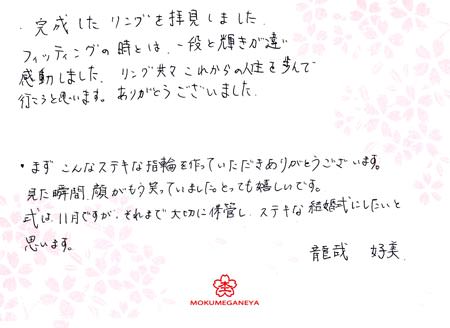 ・完成したリングを拝見しました。
フィッティングの時とは、一段と輝きが違い
感動しました。リング共々これからの人生を歩んで
行こうと思います。ありがとうございました。
・まず こんなステキな指輪を作っていただきありがとうございます。
見た瞬間、顔がもう笑っていました。とっても嬉しいです。
式は、11月ですが、それまで大切に保管し、ステキな結婚式にしたいと
思います。
龍哉 好美
MOKUMEGANEYA